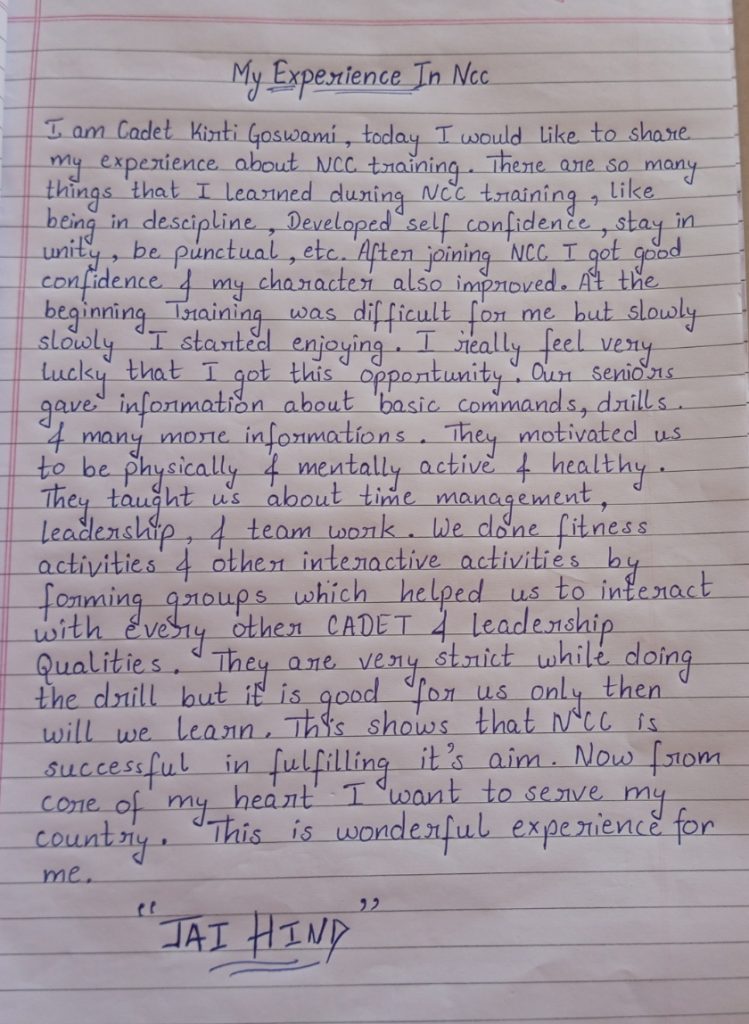 My Experience In Ncc
I am Cadet Kirti Goswami, today I would like to share
my experience about NCC training. There are so many
things that I learned during NCC training, like
being in descipline, Developed self confidence, stay in
unity, be punctual, etc. After joining NCC I got good
confidence & my character also improved. At the
beginning Training was difficult for me but slowly
slowly I started enjoying. I really feel very
lucky that I got this opportunity. Our seniors
gave information about basic commands, drills.
& many more informations. They motivated us
to be physically & mentally active & healthy.
They taught us about time management,
leadership, & team work. We done fitness
activities & other interactive activities by
forming groups which helped us to interact
with every other CADET & leadership
Qualities. They are very strict while doing
the drill but it is good for us only then
will we learn. This shows that NCC is
successful in fulfilling it's aim. Now from
core of my heart I want to serve my
country. This is wonderful experience for
me.
"JAI HIND"